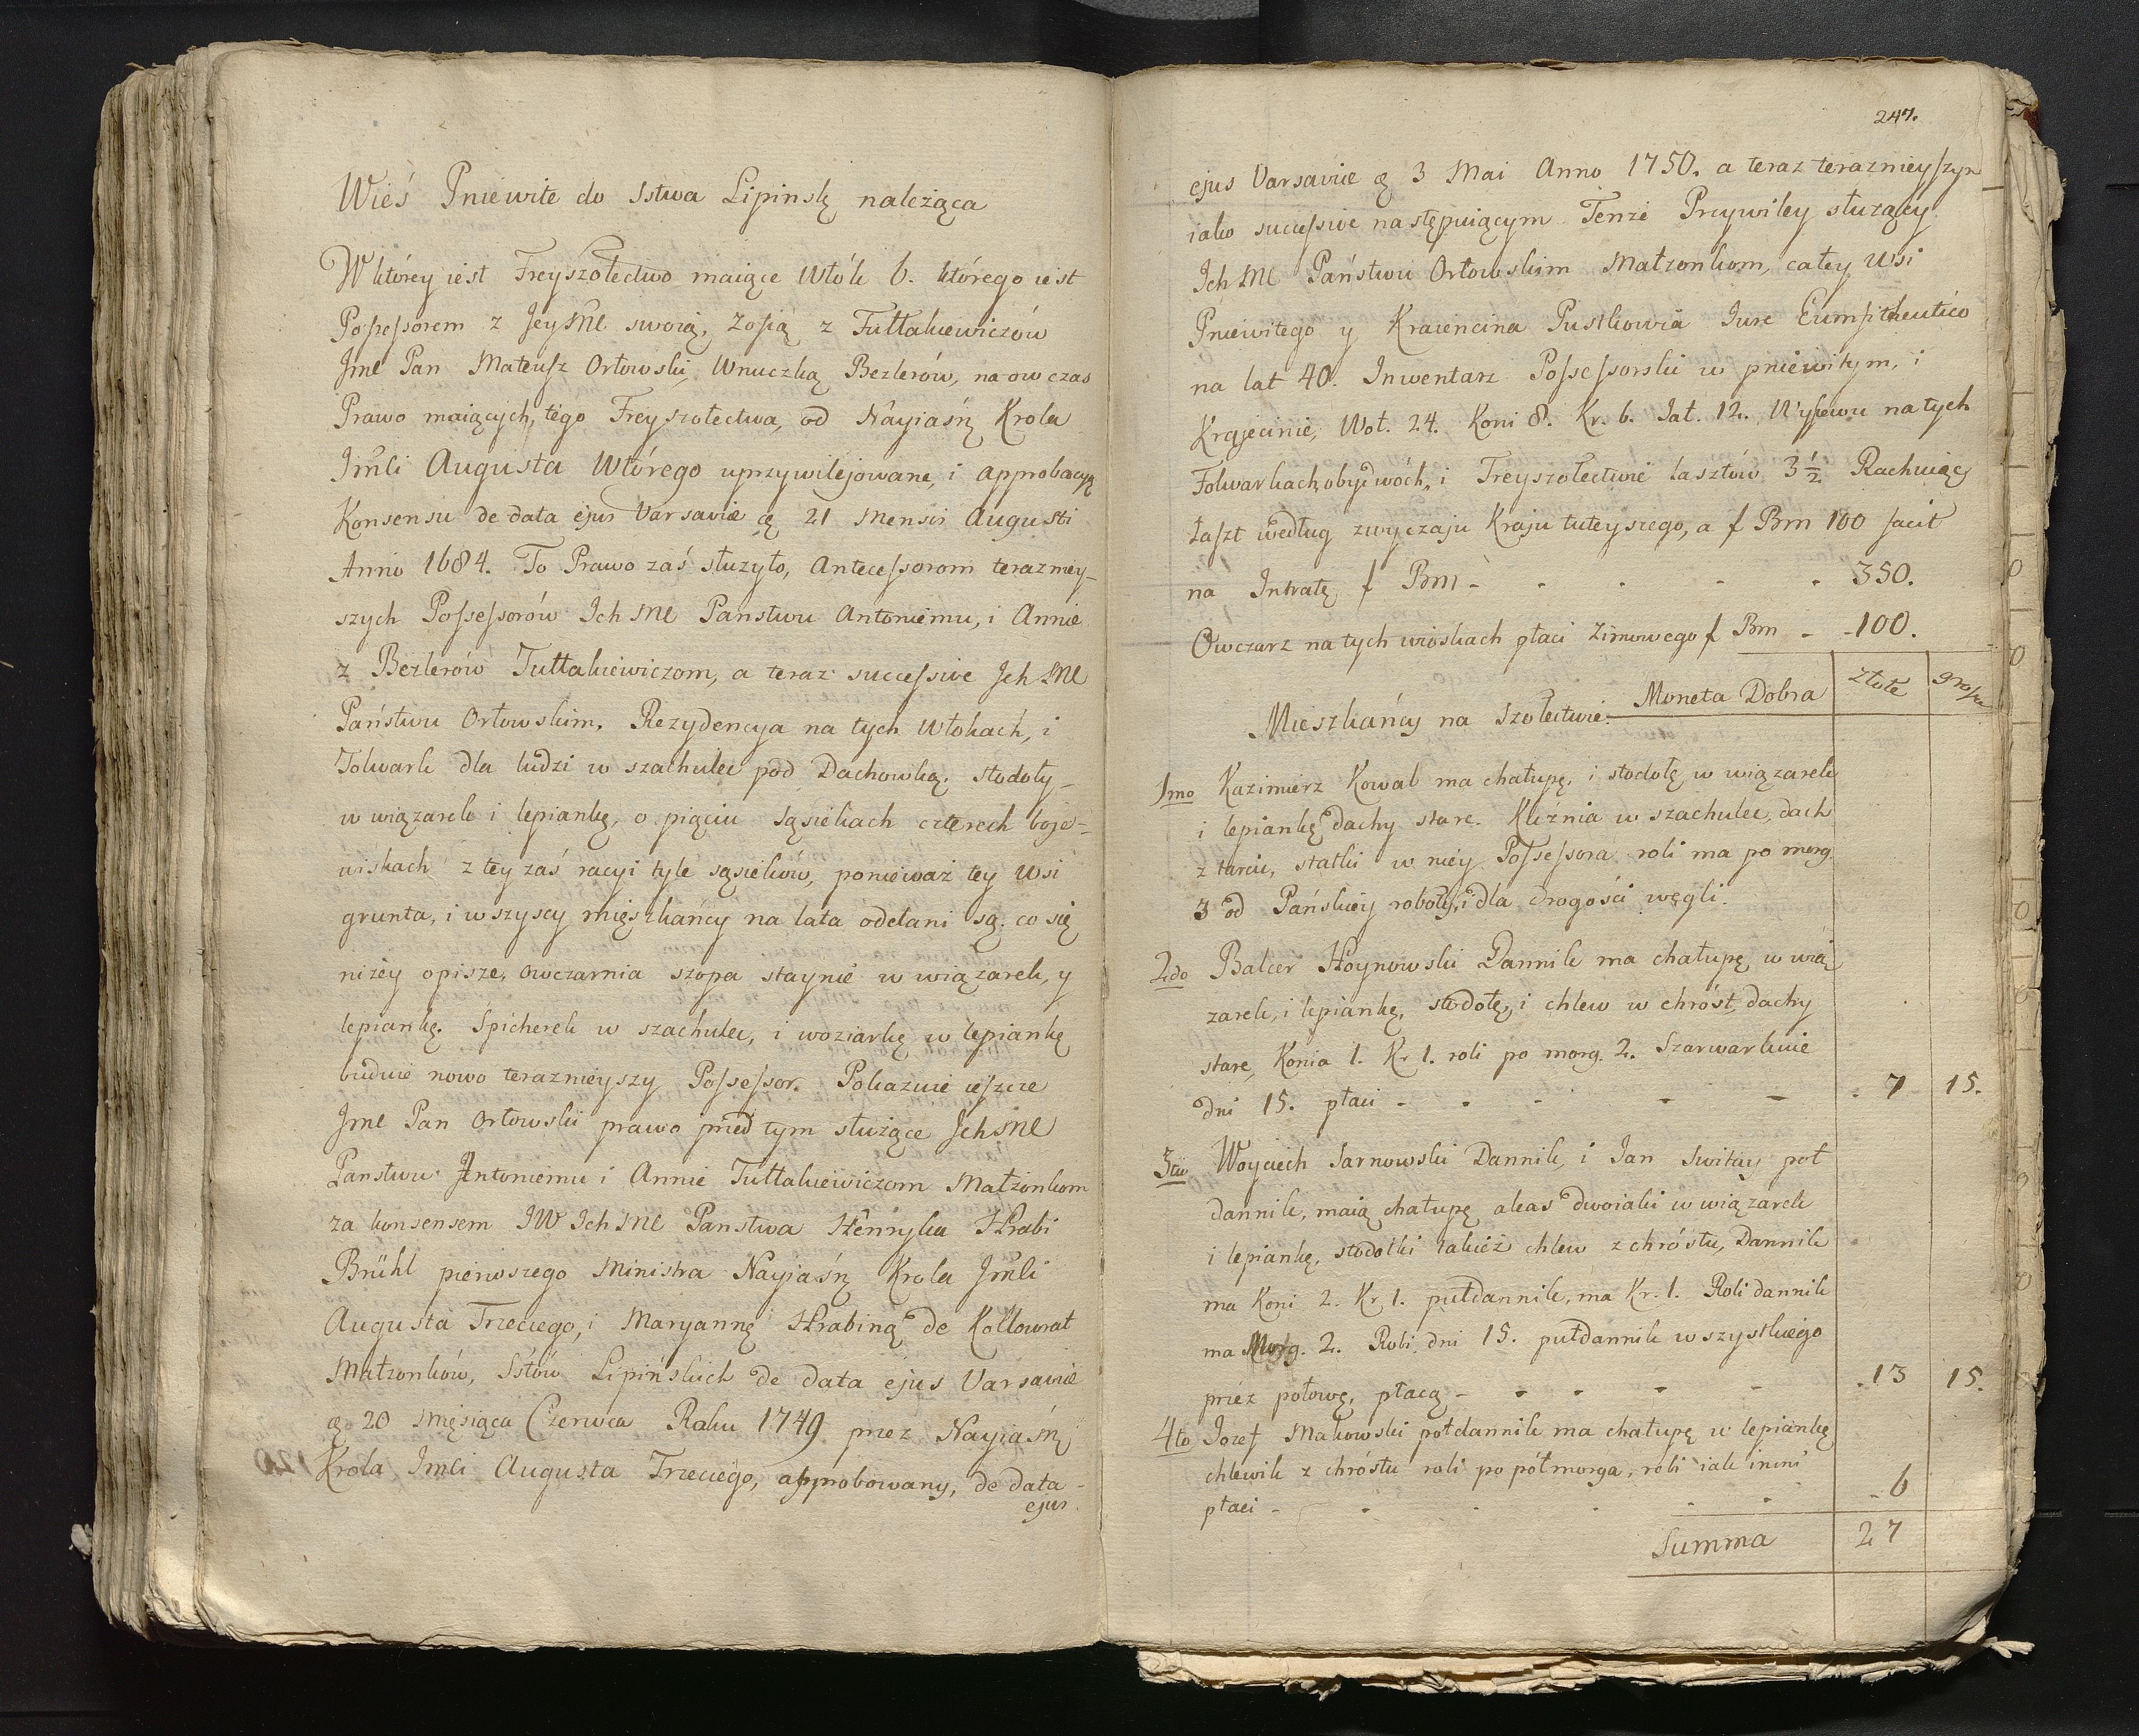 Wieś Pniewite do Sstwa Lipinskę należąca
W którey iest Freyszołectwo maiące Włók 6. którego iest
Possessorem z JeyMC swoią, Zofią z Tuttakiewiczów
Jmc Pan Mateusz Orłowski, Wnuczką Bezlerów, na ow czas
Prawo maiących, tego Freyszołectwa, od Nayiaśn Krola
Jmci Augusta Wtórego uprzywilejowane, i approbacyą
Konsensu de data ejus Varsavie 21 Mensis Augusti
Anno 1684. To Prawo zaś służyło, Antecessorom terazniey-
szych Possessorów Ich MC Panstwu Antoniemu, i Annie
z Bezlerów Tuttakiewiczom, a teraz successive Jch MC
Państwu Orłowskim. Rezydencya na tych Włokach, i
Folwark dla ludzi w szachulec pod Dachowką. Stodoły
w wiązarek i lepiankę, o pięciu sąsiekach czterech boje-
wiskach z tey zaś racyi tyle sąsieków, ponieważ tey Wsi
grunta, i wszyscy mięszkańcy na lata oddani są. co się
niżey opisze. Owczarnia szopa staynie w wiązarek, y
lepiankę. Spicherek w szachulec, i woziarkę w lepiankę
buduie nowo teraznieyszy Possessor. Pokazuie ieszcze
Jmc Pan Orłowski prawo przed tym służące Jch MC
Panstwu Antoniemu i Annie Tuttakiewiczom Małżonkom
za konsensem JW Ich MC Panstwa Henryka Hrabi
Brühl pierwszego Ministra Nayiaśn Krola Jmci
Augusta Trzeciego, i Maryannę Hrabiną de Kollowrat
Małżonków, Sstów Lipińskich de data ejus Varsavie
20 Męsiąca Czerwca Roku 1749 przez Nayiaśn
Krola Jmci Augusta Trzeciego, approbowany, de data
ejus
247.
ejus Varsavie 3 Mai Anno 1750. a teraz teraznieyszym
iako successive następuiącym Tenże Przywiley służący
Ich MC Państwu Orłowskim Małżonkom, całey Wsi
Pniewitego y Kraiencina Pustkowia Jure Eumfitheutico
na lat 40. Inwentarz Possessorski w pniewitym, i
Krajęcinie, Woł. 24. Koni 8. Kr. 6. Jał. 12. Wysiewu na tych
Folwarkach obydwóch, i Freyszołectwie łasztów 3½ Rachuiąc
Łaszt według zwyczaju Kraju tuteyszego, a f Pm 100 facit
na Intratę f Pm - - - - - 350.
Owczarz na tych wioskach płaci Zimowego f Pm - -100.
Mieszkańcy na Szołectwie. Moneta Dobra złote grosze
1mo Kazimierz Kowal ma chałupę, i stodołę w wiązarek
i lepiankę dachy stare. Kuźnia w szachulec, dach
z tarcic, statki w niey Possessora roli ma po morg
3 od Pańskiey roboty, i dla drogości węgli.
2do Balcer Hoynowski Dannik ma chałupę w wią
zarek, i lepiankę, stodołę, i chlew w chróst, dachy
stare, Konia 1. Kr 1. roli po morg. 2. Szarwarkuie
dni 15. płaci - - - - - 7 15.
3tio Woyciech Sarnowski Dannik, i Jan Switay poł
dannik, maią chałupę aleas dwoiaki w wiązarek
i lepiankę, stodołki takież chlew z chróstu, Dannik
ma Koni 2. Kr. 1. pułdannik, ma Kr. 1. Roli dannik
ma Morg. 2. Robi dni 15. pułdannik wszystkiego
przez połowę, płacą - - - - - 13 15.
4to Jozef Makowski połdannik ma chałupę w lepiankę
chlewik z chróstu roli po półmorga, robi iak inni
płaci - - - - - - 6
Summa 27